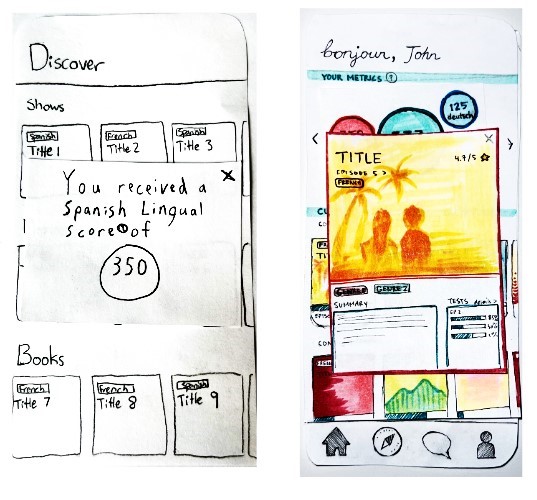 Discover
Shows
Spanish
Title 1
French
Title 2
Spanish
Title 3
You received a
Spanish Lingual
score of
350
X
Books
French
Title 7
French
Title 8
Spanish
Title 9
bonjour, John
YOUR METRICS ?
125
deutsch
X
TITLE
4.7/5
EPISODE 5 >
FRENCH
GENRE 2
SUMMARY
TESTS
EP 2